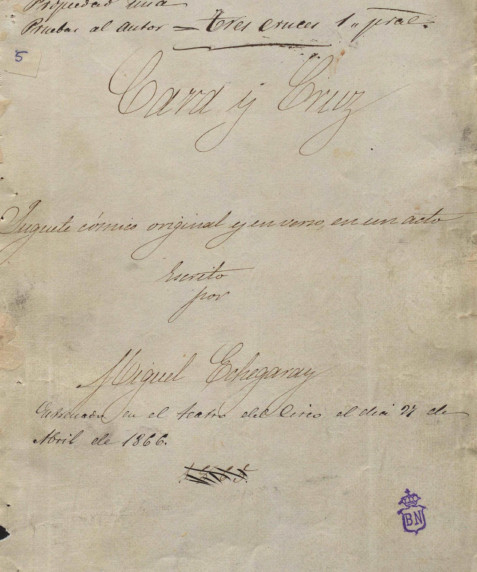 Propiedad mia
Pruebas al Autor = tres cruces 1.. pral.
5
Cara y Cruz
Juguete cómico original y en verso, en un acto
Escrito
por
Miguel Echegaray
Estrenado en el teatro del Circo el dia 27 de
Abril de 1866.
BN